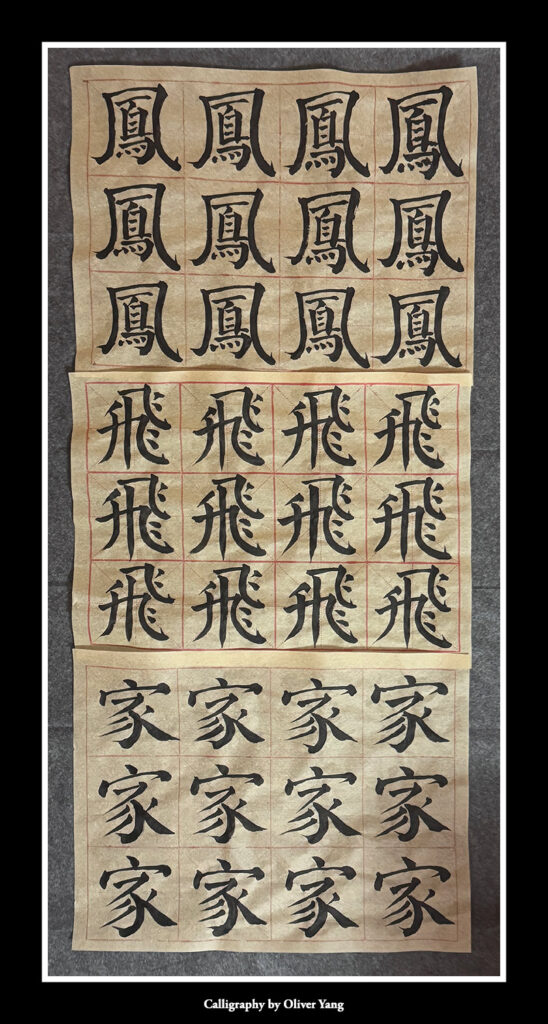 鳳鳳鳳鳳
鳳鳳鳳鳳
鳳鳳鳳鳳
飛飛飛飛
飛飛飛飛
飛飛飛飛
家家家家
家家家家
家家家家
Calligraphy by Oliver Yang